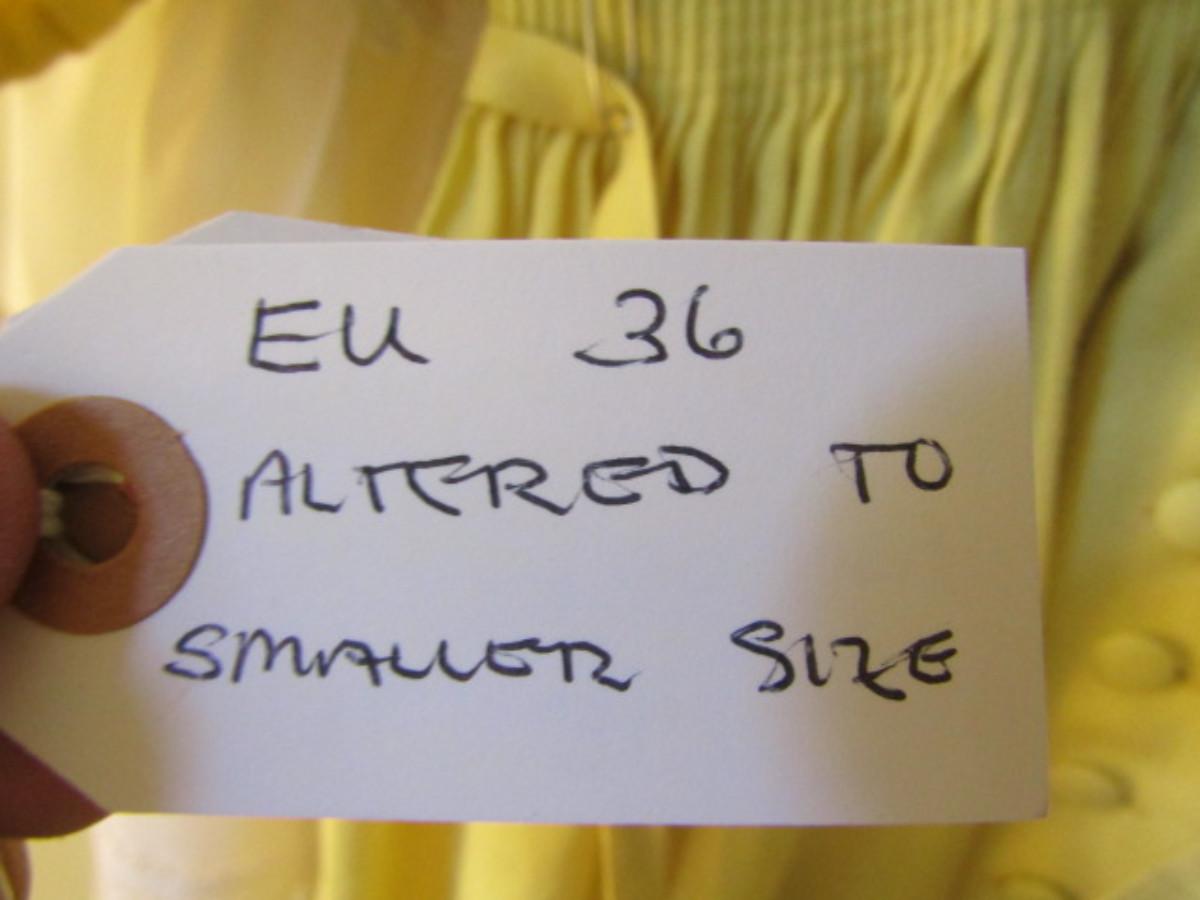 EU 36
ALTERED TO
SMALLER SIZE